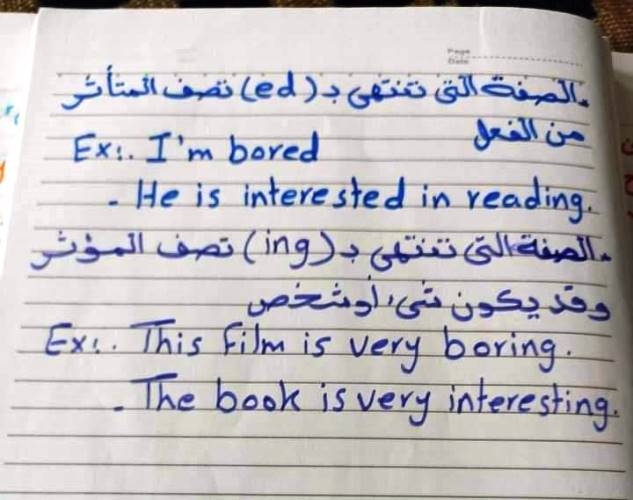 Page
Date
.الصفة التى تنتهى بـ (ed) تصف المتأثر
من الفعل
Ex:. I'm bored
. He is interested in reading.
.الصفة التى تنتهى بـ (ing) تصف المؤثر
وقد يكون شىء أو شخص
Ex:. This film is very boring.
. The book is very interesting.